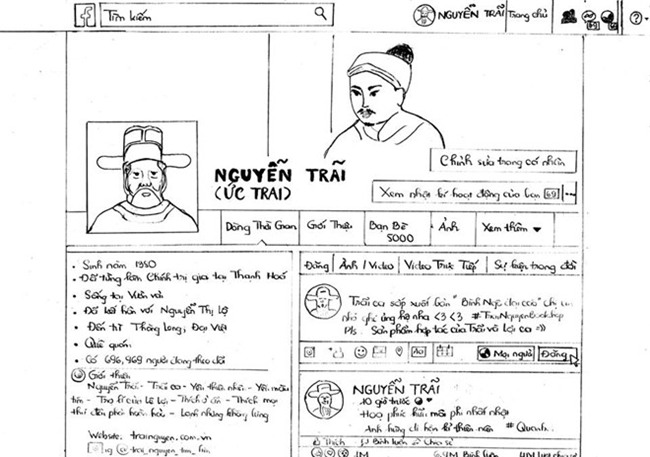 f Tìm kiếm NGUYỄN TRÃI Trang chủ
Chỉnh sửa trang cá nhân
NGUYỄN TRÃI
(ỨC TRAI)
Xem nhật kí hoạt động của bạn 69 ...
Dòng Thời Gian Giới Thiệu Bạn Bè Ảnh Xem thêm
5000
Sinh năm 1380
Đã từng làm Chính trị gia tại Thanh Hoá
Sống tại
Đã kết hôn với Nguyễn Thị Lộ
Đến từ Thăng Long, Đại Việt
Quê quán:
Có 696,969 người đang theo dõi
Giới thiệu
Nguyễn Trãi - Trãi ca - Yêu thiên nhiên - Yêu màu
tím - Thơ Lê Lợi - Thích - Thích mọi
thứ đến phải hoàn hảo - Lạnh lùng
Website: trainguyen.com.vn
ig @trai_nguyen_tim
Đăng Ảnh / Video Video Trực Tiếp Sự kiện trong đời
Trãi ca sắp xuất bản "Bình Ngô đại cáo" chị em
nhớ ghé ủng hộ nha <3 <3
P/s: Sản phẩm hợp tác của Trãi và Lợi ca =))
Mọi người Đăng
NGUYỄN TRÃI
10 giờ trước
Hoạ phúc hữu môi phi nhất nhật
Anh hùng di hận kỉ thiên niên
Thích Bình luận Chia sẻ